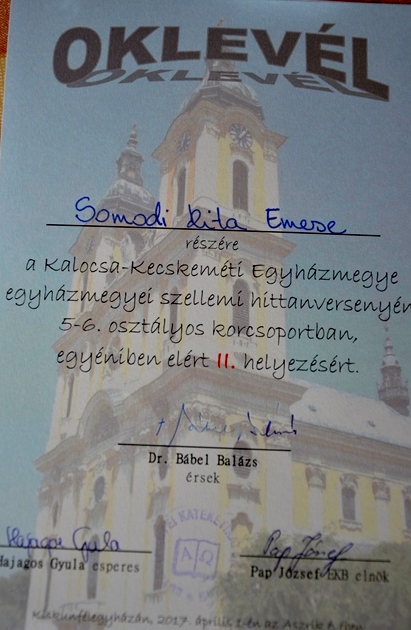 OKLEVÉL
Somodi Rita Emese
részére
a Kalocsa-Kecskeméti Egyházmegye
egyházmegyei szellemi hittanversenyén
5-6. osztályos korcsoportban,
egyéniben elért II. helyezésért.
Dr. Bábel Balázs
érsek
Hajagos Gyula
Hajagos Gyula esperes
Pap József
Pap József EKB elnök
Α Ω
Kiskunfélegyházán, 2017. április 1-én az